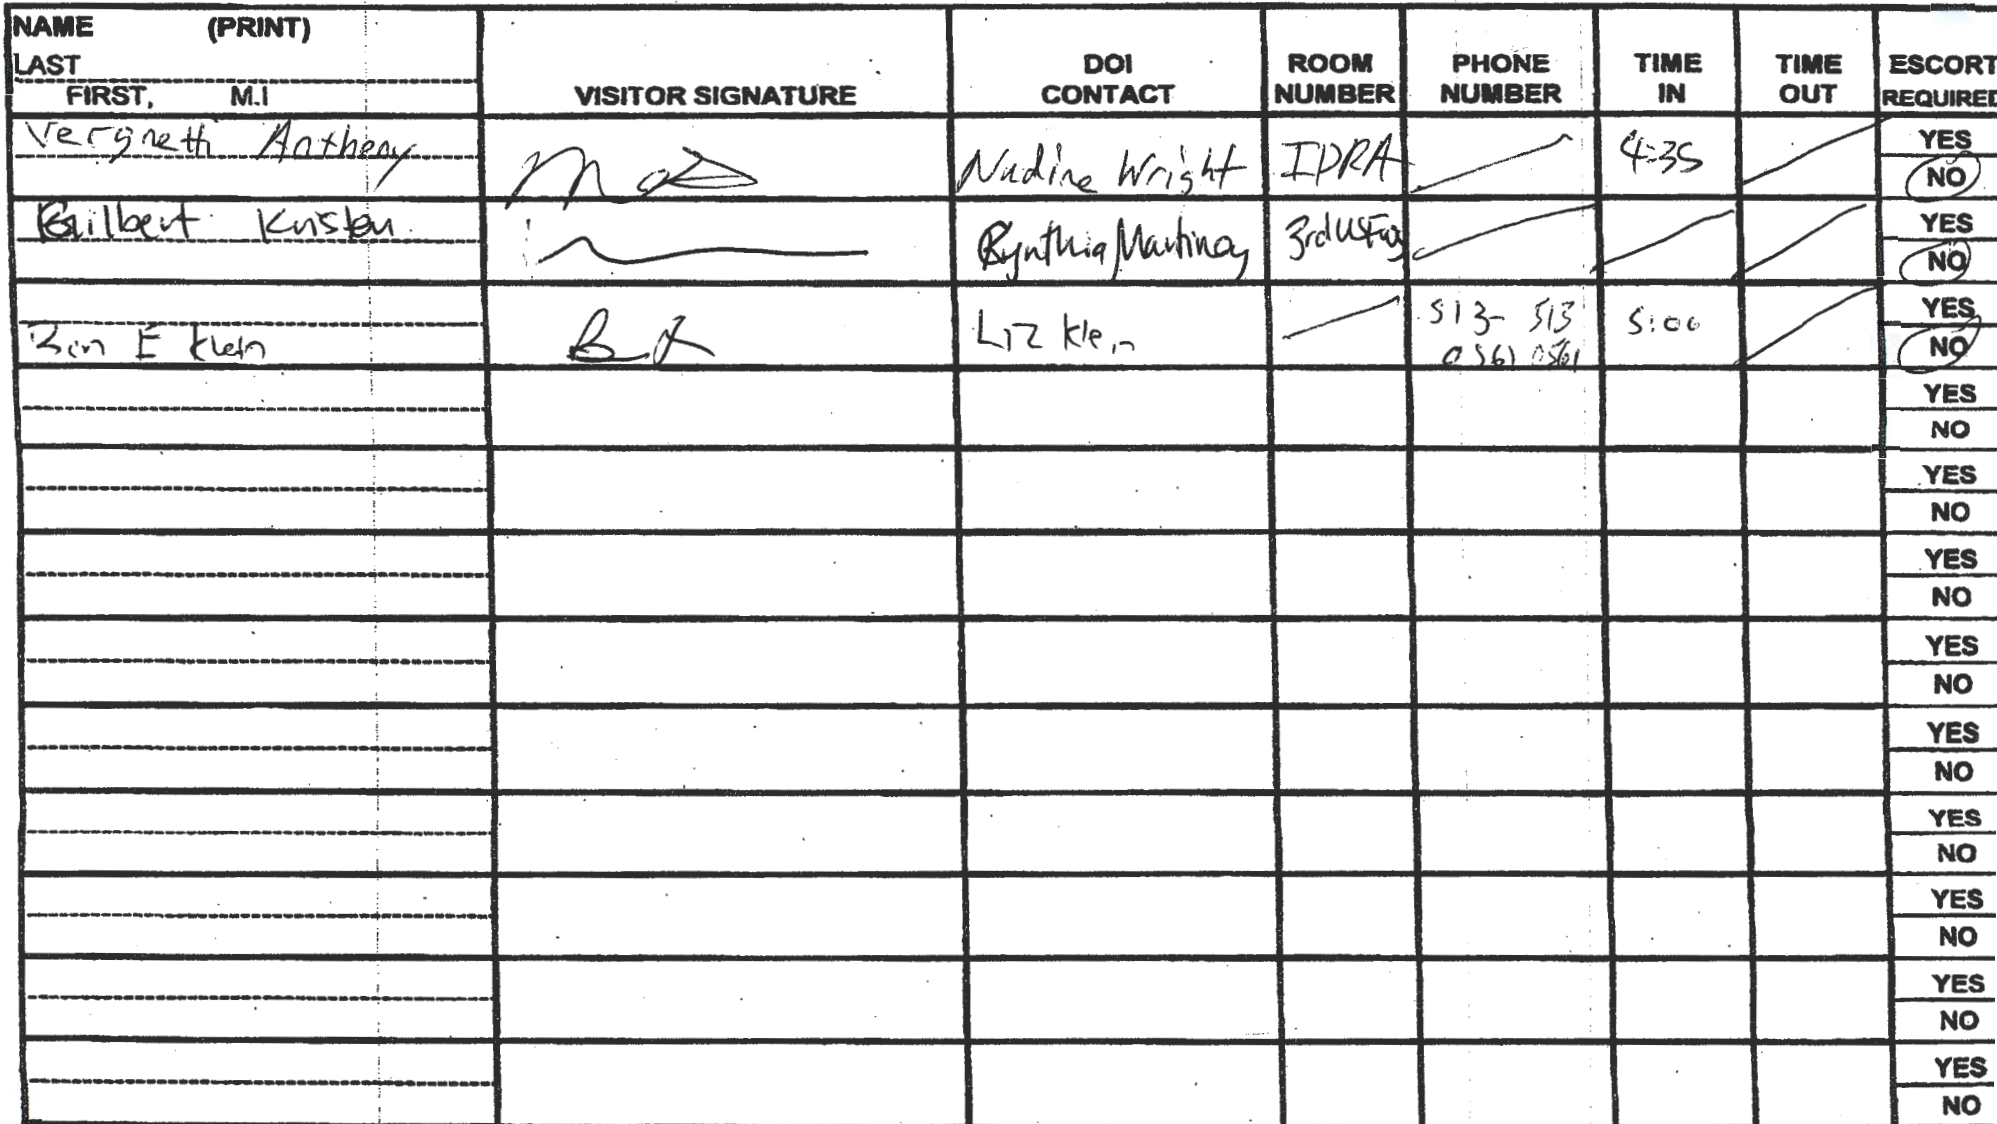 NAME (PRINT)
LAST
FIRST, M.I
VISITOR SIGNATURE
DOI CONTACT
ROOM NUMBER
PHONE NUMBER
TIME IN
TIME OUT
ESCORT REQUIRED
Vergnetti Anthony
Nadine Wright IPRA 4:35 YES
NO
Gilbert Kristen
Cynthia Martinez YES
NO
Liz Klein 513- 513 5:00 YES
E Klein 0561 0561 NO
YES
NO
YES
NO
YES
NO
YES
NO
YES
NO
YES
NO
YES
NO
YES
NO
YES
NO